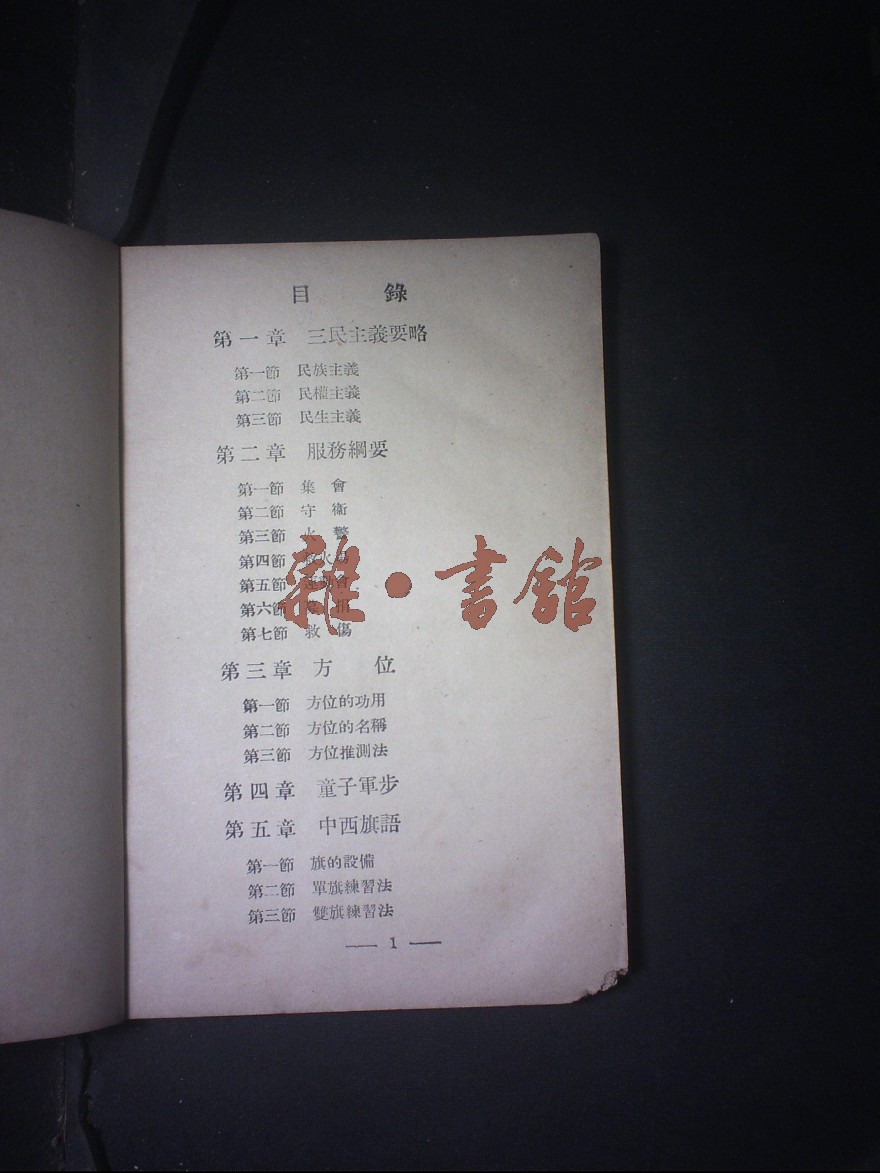 目 錄
第一章 三民主義要略
第一節 民族主義
第二節 民權主義
第三節 民生主義
第二章 服務綱要
第一節 集 會
第二節 守 衞
第三節 火 警
第四節
第五節 運動會
第六節 捐
第七節 救 傷
雜·書館
第三章 方 位
第一節 方位的功用
第二節 方位的名稱
第三節 方位推測法
第四章 童子軍步
第五章 中西旗語
第一節 旗的設備
第二節 單旗練習法
第三節 雙旗練習法
— 1 —